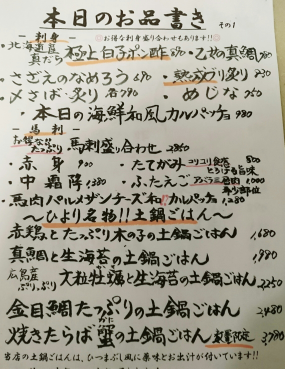 本日のお品書き その1
- 刺身 - お得な刺身盛り合わせもあります!!
・北海道産 真だら 極上白子ポン酢 ・乙や真鯛 780
・さざえのなめろう ・熟成ブリ炙り
・〆さば・炙り 各790 ・めじな
・本日の海鮮和風カルパッチョ 980
- 馬刺 -
たっぷり 馬刺し盛り合わせ 2860
・赤身 920 ・たてがみ コリコリ食感 とろける旨味 800
・中霜降 1,380 ・ふたえご アバラ三層肉 希少部位 1,000
・馬肉パルメザンチーズ和風カルパッチョ 1,280
〜ひより名物!!土鍋ごはん〜
赤鶏とたっぷり木の子の土鍋ごはん 1,680
真鯛と生海苔の土鍋ごはん 1,980
広島産 ぷりっぷり 大粒牡蠣と生海苔の土鍋ごはん 2,250
金目鯛たっぷりの土鍋ごはん 2,480
焼きたらば蟹の土鍋ごはん 数量限定 3,780
当店の土鍋ごはんは、ひつまぶし風に薬味とお出汁が付いています!!